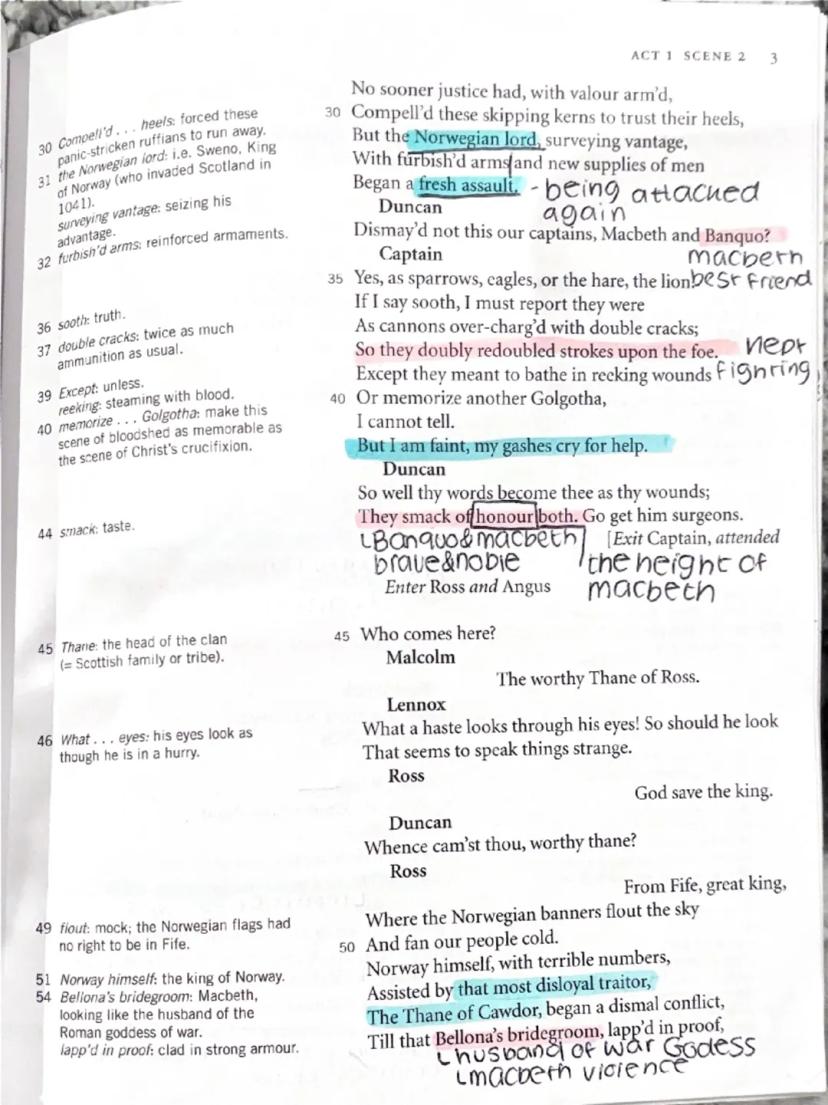 ACT 1 SCENE 2 3
No sooner justice had, with valour arm'd,
30 Compell'd these skipping kerns to trust their heels,
But the Norwegian lord, surveying vantage,
With furbish'd arms and new supplies of men
Began a fresh assault. - being attacked
again
Duncan
Dismay'd not this our captains, Macbeth and Banquo?
macbeth
best friend
Captain
35 Yes, as sparrows, eagles, or the hare, the lion.
If I say sooth, I must report they were
As cannons over-charg'd with double cracks;
So they doubly redoubled strokes upon the foe. kept
fighting
Except they meant to bathe in reeking wounds
40 Or memorize another Golgotha,
I cannot tell.
But I am faint, my gashes cry for help.
Duncan
So well thy words become thee as thy wounds;
They smack of honour both. Go get him surgeons.
[Exit Captain, attended
Banquo & macbeth
brave & noble
the height of
macbeth
Enter Ross and Angus
45 Who comes here?
Malcolm
The worthy Thane of Ross.
Lennox
What a haste looks through his eyes! So should he look
That seems to speak things strange.
Ross
God save the king.
Duncan
Whence cam'st thou, worthy thane?
Ross
From Fife, great king,
Where the Norwegian banners flout the sky
50 And fan our people cold.
Norway himself, with terrible numbers,
Assisted by that most disloyal traitor,
The Thane of Cawdor, began a dismal conflict,
Till that Bellona's bridegroom, lapp'd in proof,
husband of war Godess
macbeth violence
30 Compell'd . . . heels: forced these
panic-stricken ruffians to run away.
31 the Norwegian lord: i.e. Sweno, King
of Norway (who invaded Scotland in
1041).
surveying vantage: seizing his
advantage.
32 furbish'd arms: reinforced armaments.
36 sooth: truth.
37 double cracks: twice as much
ammunition as usual.
39 Except: unless.
reeking: steaming with blood.
40 memorize . . . Golgotha: make this
scene of bloodshed as memorable as
the scene of Christ's crucifixion.
44 smack: taste.
45 Thane: the head of the clan
(= Scottish family or tribe).
46 What . . . eyes: his eyes look as
though he is in a hurry.
49 flout: mock; the Norwegian flags had
no right to be in Fife.
51 Norway himself: the king of Norway.
54 Bellona's bridegroom: Macbeth,
looking like the husband of the
Roman goddess of war.
lapp'd in proof: clad in strong armour.